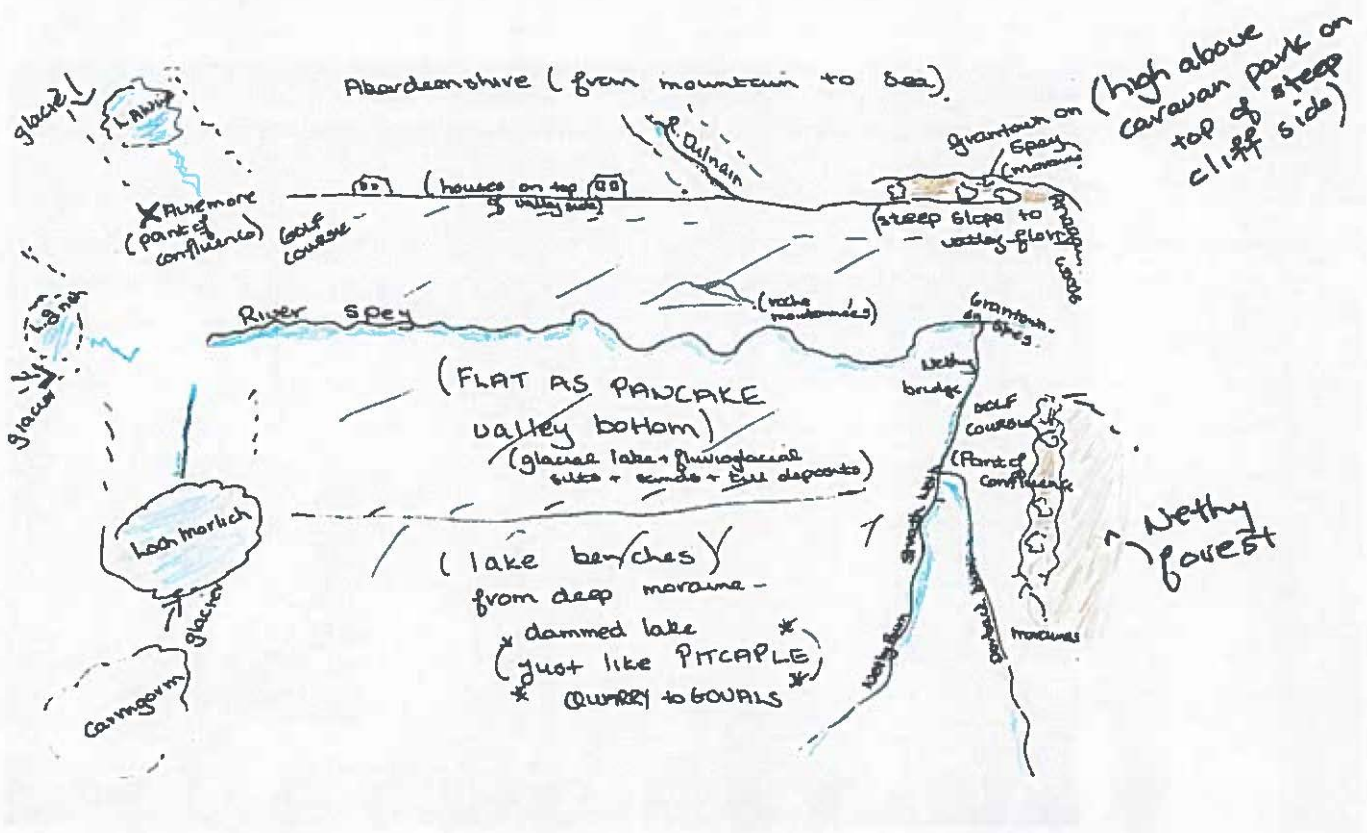 Aberdeenshire (from mountain to sea)
glacier
L. Alvie
X Aviemore
(point of
confluence)
GOLF
COURSE
(houses on top
of valley side)
R. Dulnain
grantown on
Spey
(moraines
(high above
caravan park on
top of steep
cliff side)
(steep slope to
valley floor
Anagach woods
glacier
River Spey
(roche
moutonnées)
Grantown
on
Spey.
Nethy
bridge
(FLAT AS PANCAKE
valley bottom)
(glacial lake + fluvioglacial
silts + sands + till deposits)
GOLF
COURSE
(Point of
confluence
Nethy
forest
moraines
Loch Morlich
glacier
Cairngorm
(lake benches)
from deep moraine -
* dammed lake *
(just like PITCAPLE)
* QUARRY to GOVALS *
Nethy Burn